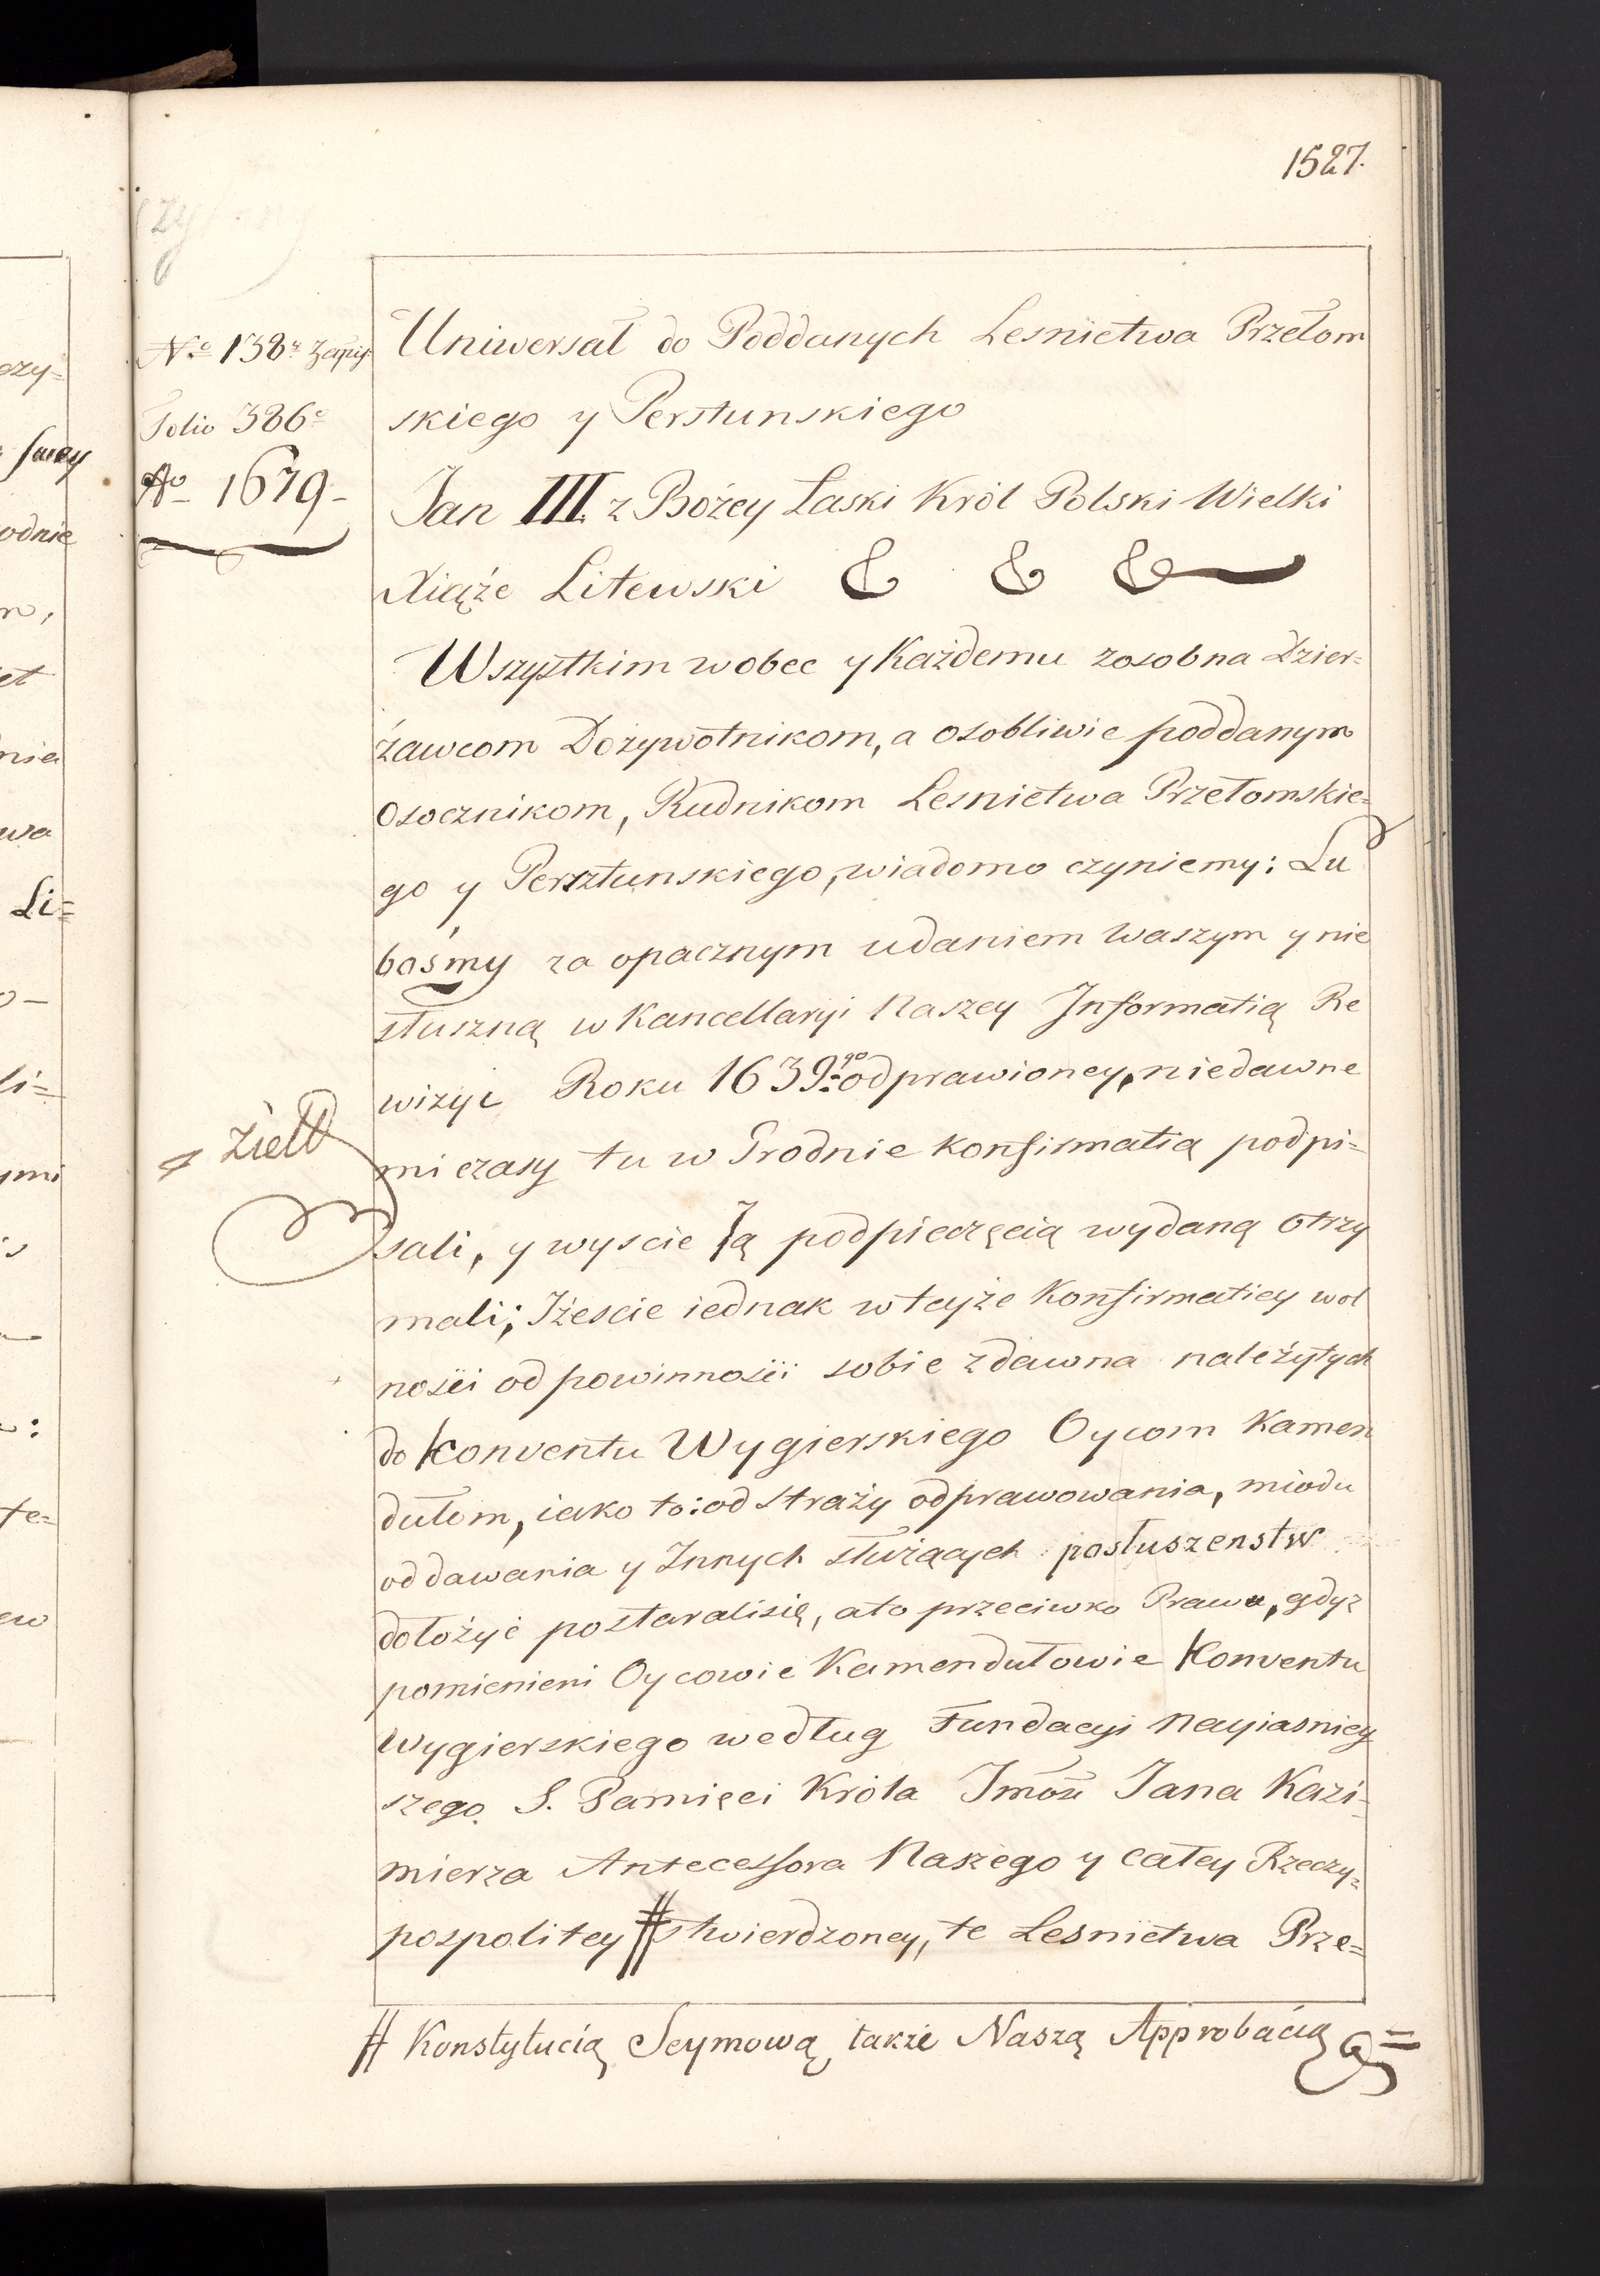 1527.
N.o 138. Zapis
Folio 386.
Ao 1679.
Uniwersał do Poddanych Lesnictwa Przełom
skiego y Perstunskiego
Jan III. z Bożey Łaski Król Polski Wielki
Xiąże Litewski & & &
Wszystkim wobec y Każdemu zosobna Dzier=
żawcom Dożywotnikom, a osobliwie poddanym
Osocznikom, Rudnikom Lesnictwa Przełomskie=
go y Persztunskiego, wiadomo czyniemy: Lu
bośmy za opacznym udaniem Waszym y nie
słuszną w Kancellaryi Naszey Informatią Re
wizyi Roku 1639.go odprawioney, niedawne
mi czasy tu w Grodnie konfirmatią podpi=
sali, y wyscie Ją podpieczęcią wydaną otrzy
mali; Iżescie iednak w teyże Konfirmatiey wol
nosci od powinnosci sobie zdawna należytych
do Konventu Wygierskiego Oycom Kamen
dułom, iako to: od straży odprawowania, miodu
oddawania y Innych służących posłuszenstw
dołożyć postaralisię, ato przeciwko Prawu, gdyż
pomienieni Oycowie Kamendułowie Konventu
Wygierskiego według Fundacyi Nayiasniey
szego S. Pamięci Króla Jmości Jana Kazi-
mierza Antecessora Naszego y całey Rzeczy=
pospolitey # stwierdzoney, te Lesnictwa Prze=
# Konstytucią Seymową także Naszą Approbácią